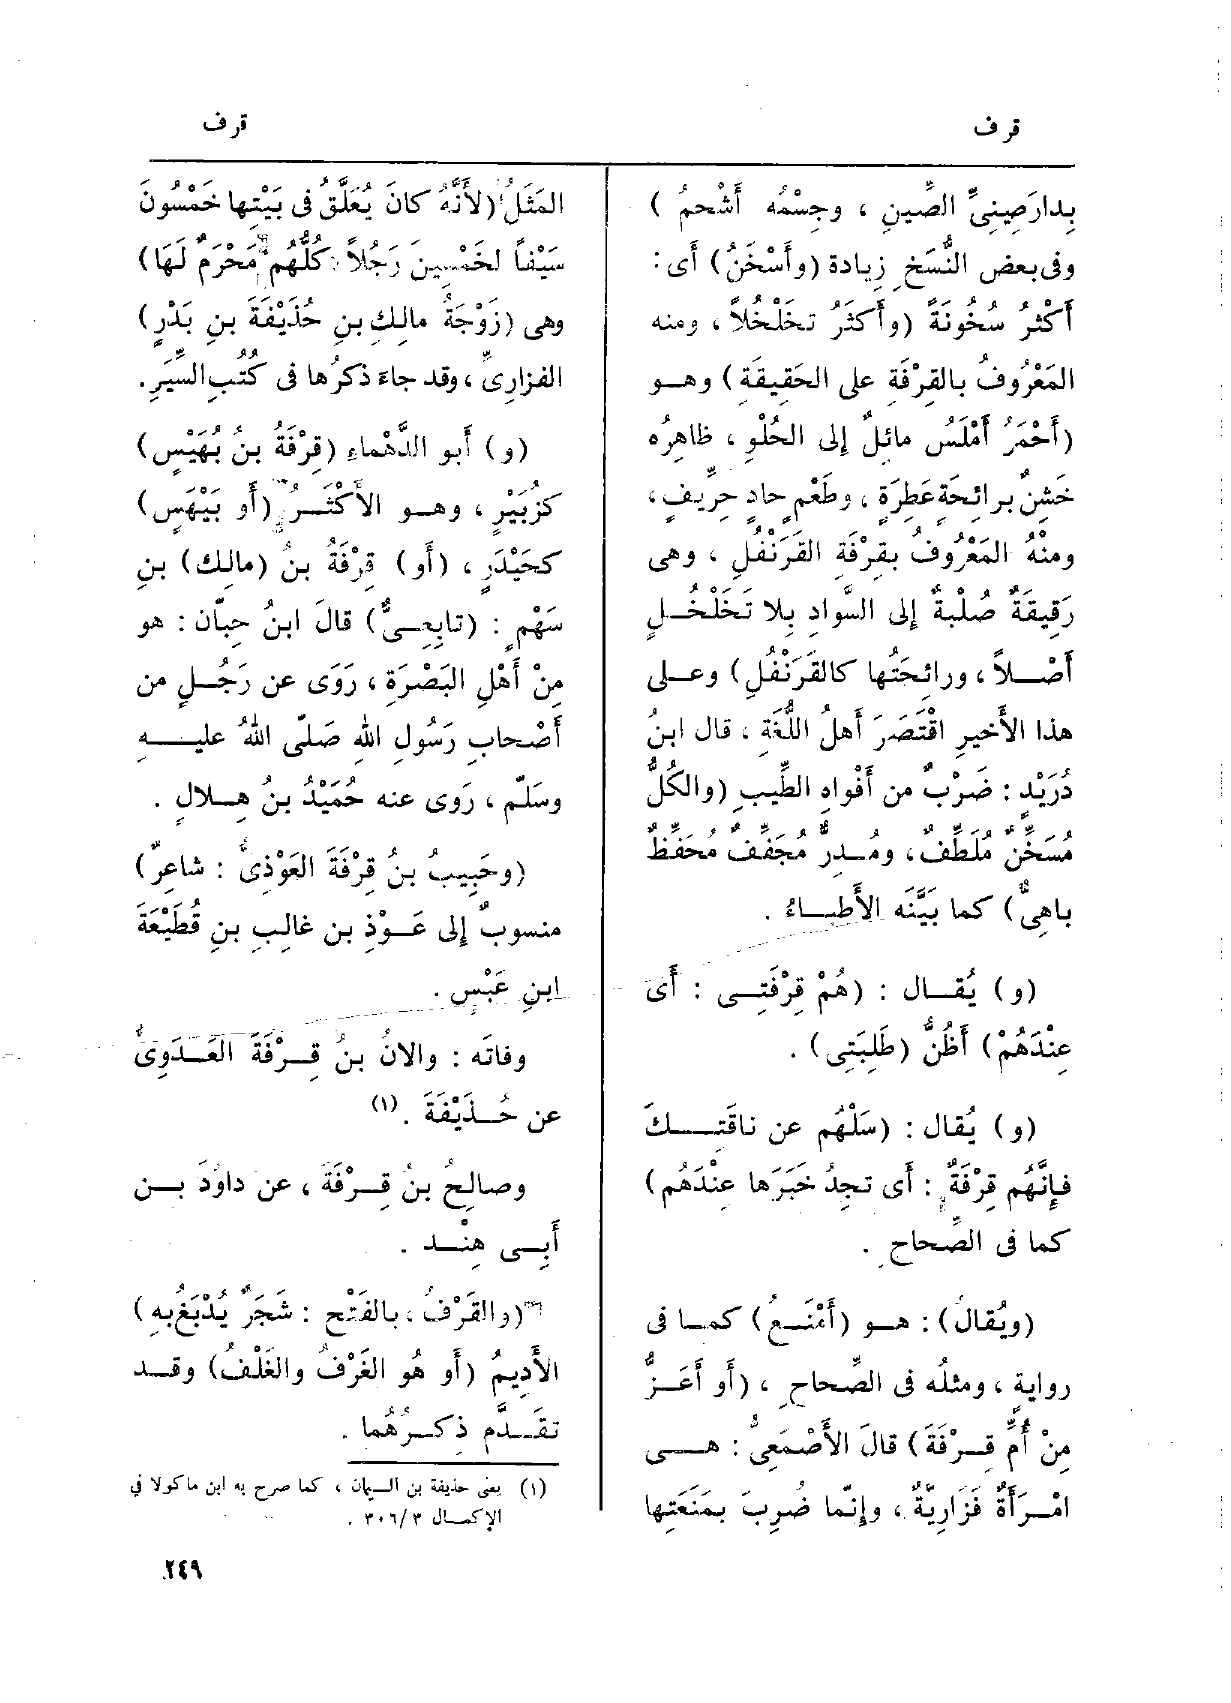 قرف
قرف
بِدارَصِينِىِّ الصِّينِ ، وجِسْمُه أَشْحمُ )
وفى بعض النُّسَخِ زيادة (وأَسْخَنُ) أَى :
أَكْثَرُ سُخُونَةً (وأَكثَرُ تخَلْخُلاً ، ومنه
المَعْرُوفُ بالقِرْفَةِ على الحَقِيقَةِ) وهـو
(أَحْمَرُ أَمْلَسُ مائِلٌ إِلى الحُلْوِ ، ظاهِرُه
خَشِنٌ برائِحَةٍ عَطِرَةٍ ، وطَعْمٍ حادٍ حِرِّيفٍ ،
ومنْهُ المَعْرُوفُ بقِرْفَةِ القَرَنْفُلِ ، وهى
رَقِيقَةٌ صُلْبَةٌ إِلى السَّوادِ بِلا تَخَلْخُـلٍ
أَصْـلاً ، ورائِحَتُها كالقَرَنْفُلِ) وعـلى
هذا الأَخيرِ اقْتَصَرَ أَهلُ اللُّغَةِ ، قال ابنُ
دُرَيْدٍ : ضَرْبٌ من أَفْواهِ الطِّيبِ (والكُلُّ
مُسَخِّنٌ مُلَطِّفٌ ، ومُـدِرٌّ مُجَفِّفٌ مُحَفِّظٌ
باهِىٌّ) كما بَيَّنَه الأَطِبـاءُ .
(و) يُقـال : (هُمْ قِرْفَتِـى : أَى
عِنْدَهُمْ) أَظُنُّ (طَلِبَتِى) .
(و) يُقال : (سَلْهُم عن ناقَتِـكَ
فإِنَّهُم قِرْفَةٌ : أَى تجِدُ خَبَرَها عِنْدَهُم)
كما فى الصِّحاحِ .
(ويُقالُ) : هـو (أَمْنَـعُ) كمـا فى
روايةٍ ، ومثلُه فى الصِّحاحِ ، (أَو أَعَـزُّ
مِنْ أُمِّ قِـرْفَةَ) قالَ الأَصْمَعِىُّ : هـى
امْـرَأَةٌ فَزَارِيَّةٌ ، وإِنَّما ضُرِبَ بمَنَعَتِها
المَثَلُ (لأَنَّهُ كانَ يُعَلَّقُ فى بَيْتِها خَمْسُونَ
سَيْفاً لخَمْسِينَ رَجُلاً كُلُّهُم مَحْرَمٌ لَها)
وهى (زَوْجَةُ مالِكِ بنِ حُذَيْفَةَ بنِ بَدْرٍ)
الفزارىِّ ، وقد جاءَ ذكرُها فى كُتُبِ السِّيَرِ .
(و) أَبو الدَّهْماءِ (قِرْفَةُ بنُ بُهَيْسٍ)
كزُبَيْرٍ ، وهـو الأَكْثَـرُ (أَو بَيْهَسٍ)
كحَيْدَرٍ ، (أَو) قِرْفَةُ بنُ (مالِك) بنِ
سَهْمٍ : (تابِعِـىٌّ) قالَ ابنُ حِبّان : هو
مِنْ أَهْلِ البَصْرَةِ ، رَوَى عن رَجُـلٍ من
أَصْحابِ رَسُولِ اللهِ صَلَّى اللهُ عليـه
وسَلّم ، رَوى عنه حُمَيْدُ بنُ هِـلالٍ .
(وحَبِيبُ بنُ قِرْفَةَ العَوْذِىُّ : شاعِرٌ)
منسوبٌ إِلى عَـوْذِ بن غالِبِ بنِ قُطَيْعَةَ
ابنِ عَبْسٍ .
وفاتَه : والانُ بنُ قِـرْفَةَ العَـدَوِىُّ
عن حُـذَيْفَةَ . (١)
وصالِحُ بنُ قِـرْفَةَ ، عن داوُدَ بـن
أَبِـى هِنْـد .
(والقَرْفُ ، بالفَتْحِ : شَجَرٌ يُدْبَغُ به)
الأَدِيمُ (أَو هُو الغَرْفُ والغَلْفُ) وقـد
تقَـدَّم ذِكـرُهُما .
(١) يعنى حذيفة بن اليمان ، كما صرح به ابن ماكولا فى
الإكمـال ٣/ ٣٠٦ .
٢٤٩